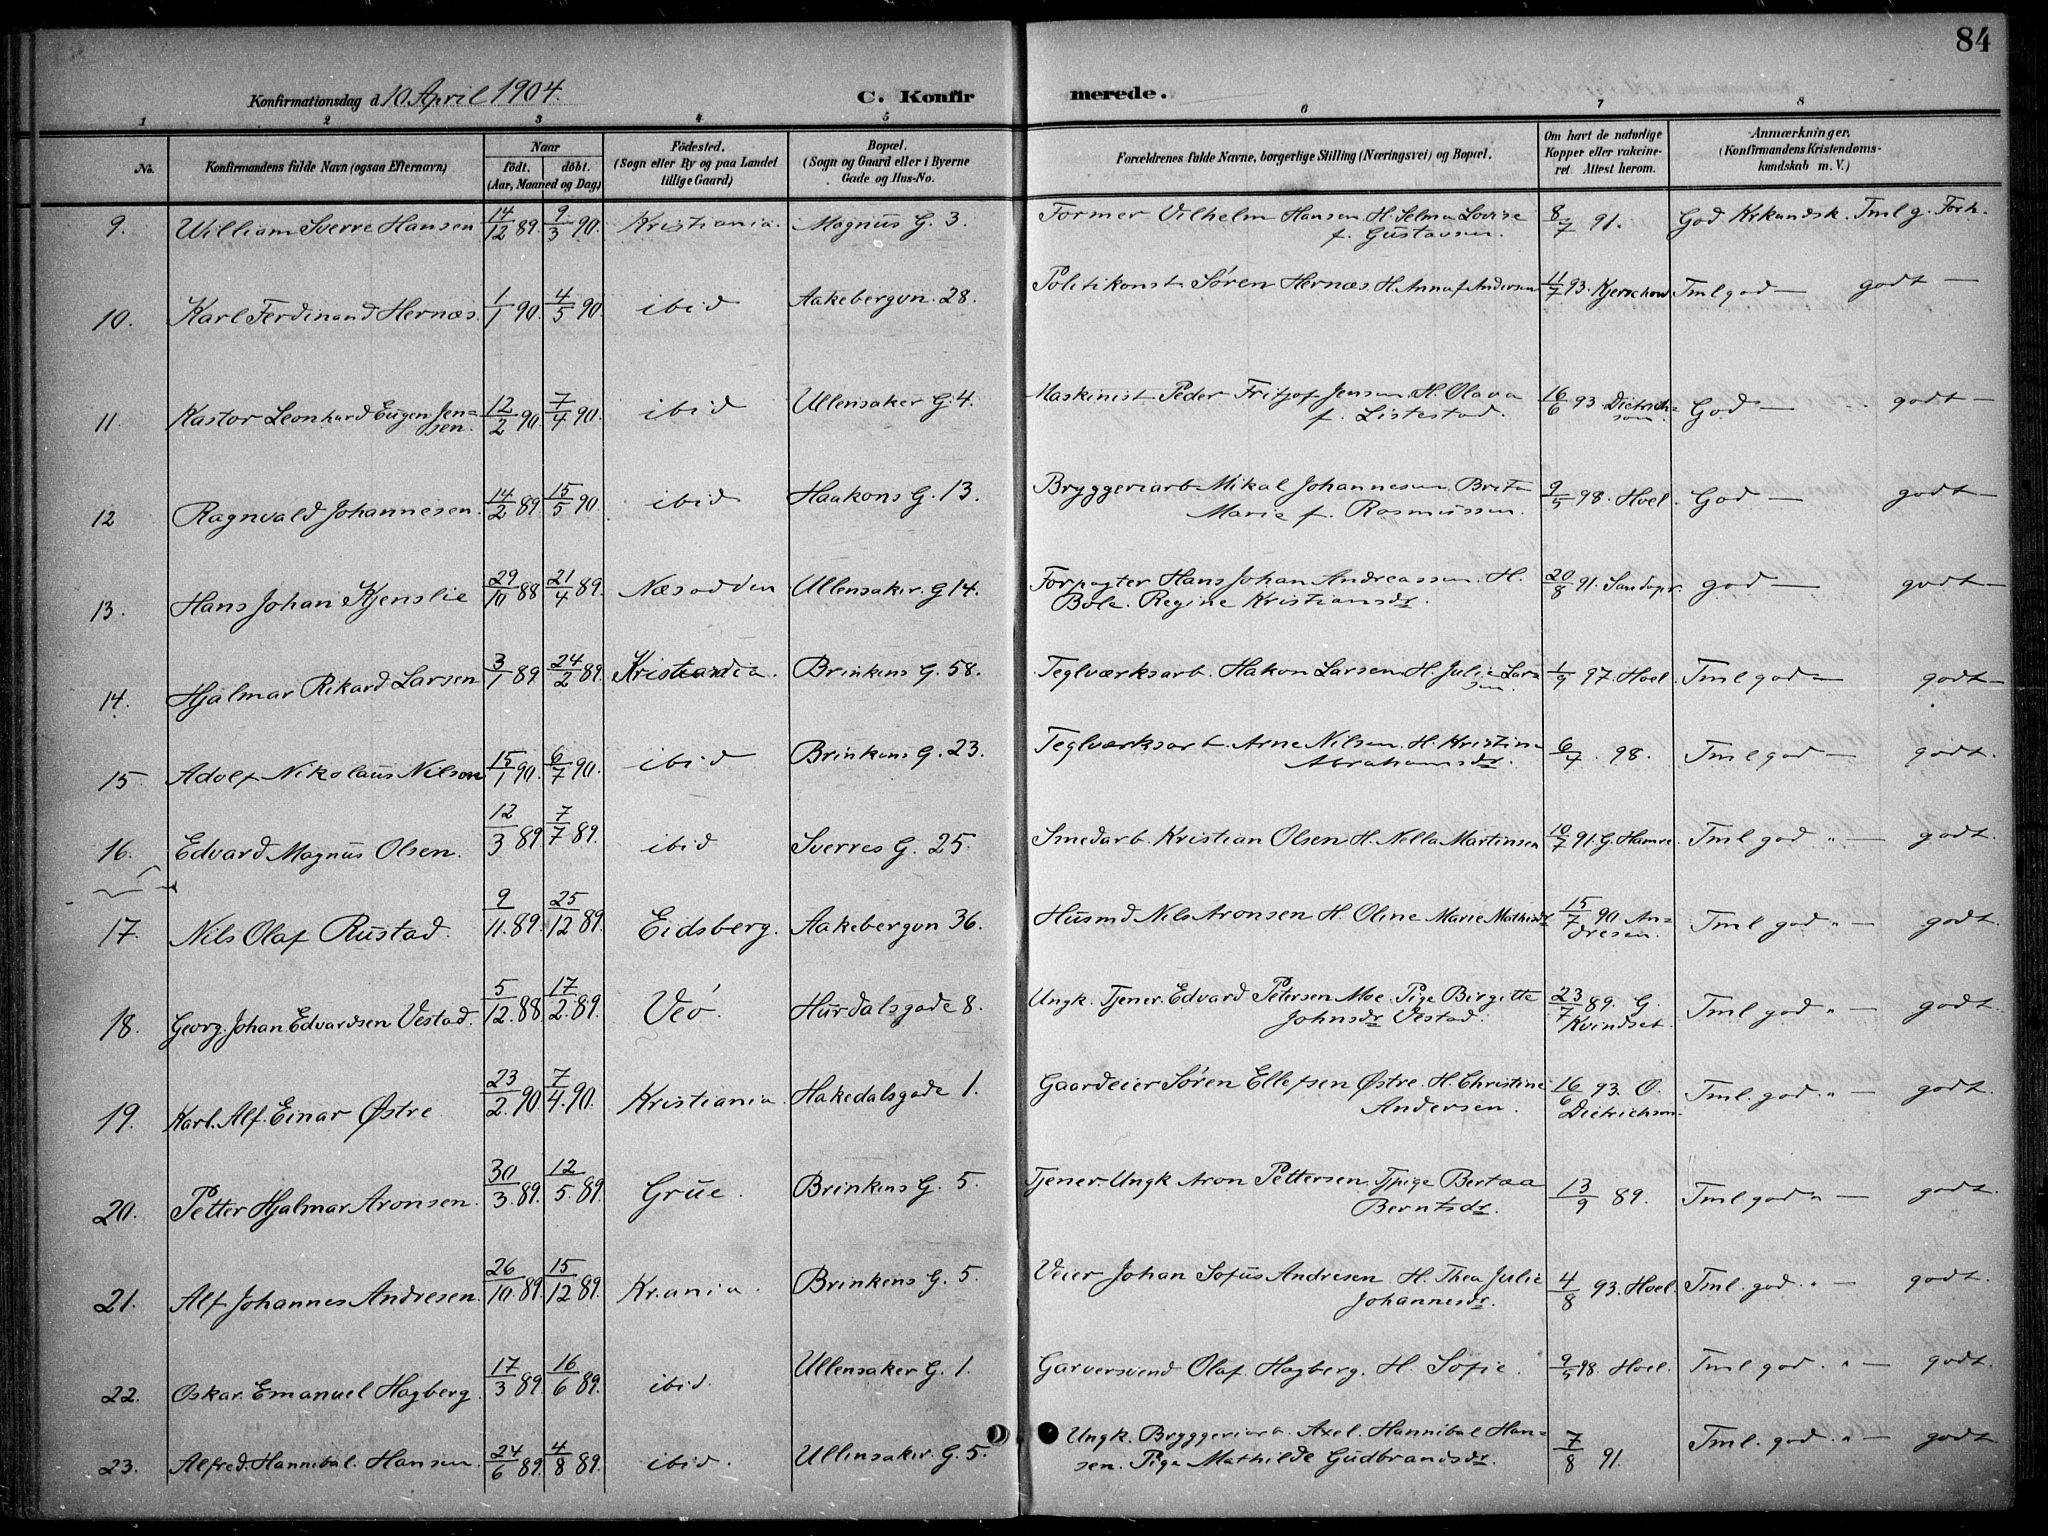 84
Konfirmationsdag d. 10 April 1904. C. Konfirmerede.
1 2 3 4 5 6 7 8
No. Konfirmandens fulde Navn (ogsaa Efternavn) Naar født. døbt. (Aar, Maaned og Dag) Fødested. (Sogn eller By og paa Landet tillige Gaard) Bopæl. (Sogn og Gaard eller i Byerne Gade og Hus-No. Forældrenes fulde Navne, borgerlige Stilling (Næringsvei) og Bopæl. Om havt de naturlige Kopper eller vakcineret Attest herom. Anmærkninger. (Konfirmandens Kristendomskundskab m. V.)
9. William Sverre Hansen 14/12 89. 9/3 90. Kristiania. Magnus G. 3. Former Vilhelm Hansen H. Selma Lovise f. Gustavsen. 8/7 91. God Krkundsk. Tml g. Forh.
10. Karl Ferdinand Hernæs. 1/1 90. 4/5 90. ibid Aakebergvn. 28. Politikonst Søren Hernæs. H. Anna f. Andersen 11/7 93. Kjerschow Tml god — godt —
11. Kastor Leonhard Eugen Jensen. 12/2 90. 7/4 90. ibid Ullensaker G. 4. Maskinist Peder Fritjof Jensen H. Olava f. Listestad. 16/6 93. Dietrichson. God — godt —
12 Ragnvald Johannesen. 14/2 89 15/5 90 ibid Haakons G. 13. Bryggeriarb Mikal Johannesen Brit Marie f. Rasmussen. 9/5 98. Hoel. God — godt —
13. Hans Johan Kjenslie 29/10 88 21/4 89. Næsodden Ullensaker. G 14. Forpagter Hans Johan Andreassen. H. Bole. Regine Kristiansdr. 20/8 91. Sandspr. god — godt —
14. Hjalmar Rikard Larsen 3/1 89 24/2 89. Kristiania. Brinkens G. 58. Teglværksarb. Hakon Larsen H. Julie Larsen 1/9 97. Hoel. Tml god — godt —
15 Adolf Nikolaus Nilsen 15/1 90. 6/7 90. ibid Brinkens G. 23. Teglværksarb. Arne Nilsen. H. Kristine Abrahamsdr. 6/4. 98. Tml god — godt.
16. Edvard Magnus Olsen. 12/3 89 7/7 89. ibid Sverres G. 25. Smedarb. Kristian Olsen H. Nella Martinsen 10/7 91. G. Hamre. Tml god " — godt.
17. Nils Olaf Rustad. 9/11. 89. 25/12 89. Eidsberg. Aakebergvn 36. Husmd Nils Aronsen H. Oline Marie Mathisdr 15/7 90. Andresen. Tml god " — godt.
18. Georg. Johan Edvardsen Vestad. 5/12. 88. 17/2. 89. Veø. Hurdalsgade 8. Ungk. Tjener. Edvard Petersen Moe. Pige Birgitte Johnsdr Vestad. 23/7 89. G. Kvindset. Tml god " — godt.
19. Karl. Alf. Einar Østre 23/2. 90 7/4. 90. Kristiania. Hakedalsgade 1. Gaardeier Søren Ellefsen Østre. H. Christine Andersen. 16/6 93. O. Dietrichson. Tml god. " — godt.
20. Petter Hjalmar Aronsen. 30/3. 89. 12/5. 89. Grue. Brinkens G. 5. Tjener. Ungk Aron Pettersen. Tjpige Bertaa Berntsdr. 13/9 89. Tml god " — godt.
21. Alf Johannes Andresen. 26/10. 89. 15/12 89. Kr.ania. Brinkens G. 5. Veier Johan Sofus Andresen H. Thea Julie Johannesdr. 4/8 93. Hoel. Tml. god. " — godt.
22. Oskar. Emanuel Hagberg. 17/3 89. 16/6 89. ibid. Ullensaker G. 1. Garversvend Olaf Hagberg. H. Sofie. 9/5 98. Hoel. Tml god. " — godt.
23. Alfred. Hannibal. Hansen. 24/6 89. 4/8 89. ibid. Ullensaker. G. 5. Ungk. Bryggeriarb. Axel. Hannibal Hansen. Pige Mathilde Gudbrandsdr. 7/8 91. Tml. god. " — godt.